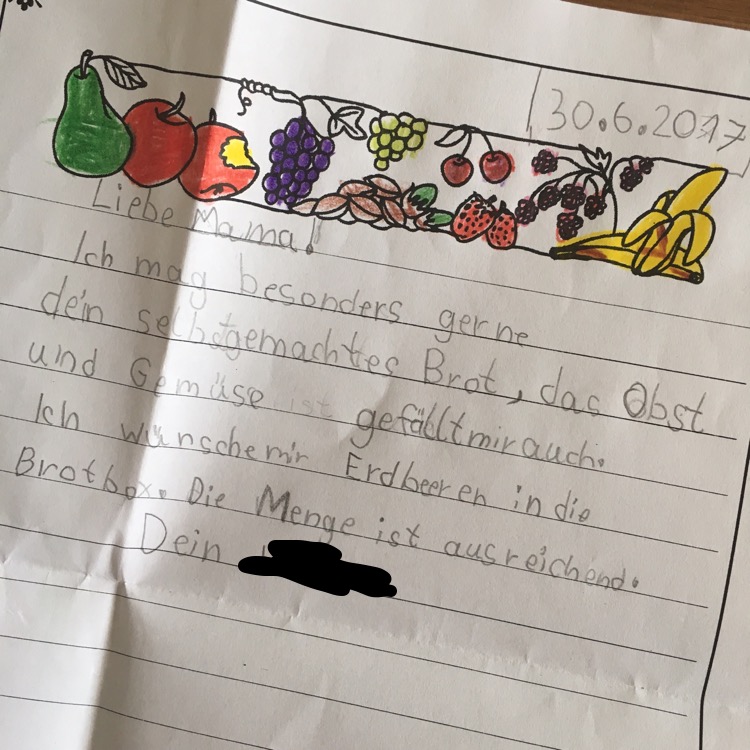 30.6.2017
Liebe Mama!
Ich mag besonders gerne
dein selbstgemachtes Brot, das Obst
und Gemüse gefällt mir auch.
Ich wünsche mir Erdbeeren in die
Brotbox. Die Menge ist ausreichend.
Dein